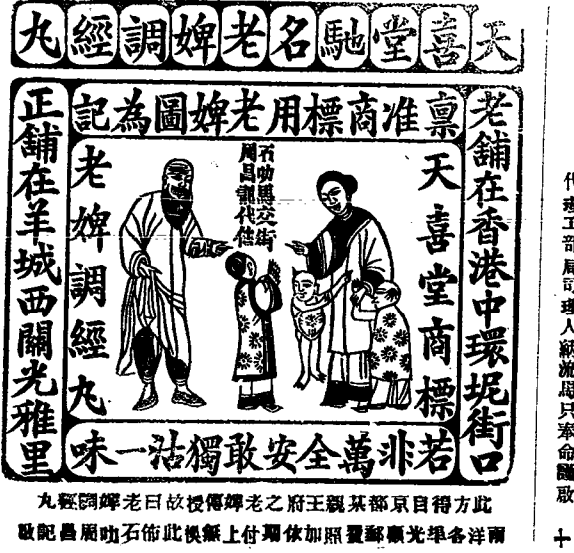 天喜堂馳名老婢調經丸
稟准商標用老婢圖為記
老舖在香港中環坭街口
天喜堂商標
石叻馬交街
周昌記代售
老婢調經丸
正舖在羊城西關光雅里
若非萬全安敢獨沽一味
此方得自京都某親王府之老婢傳授故曰老婢調經丸
南洋各埠光顧郵費照加依期付上無悞此佈石叻周昌記啟
代理工部局司理人納流馬只奉命謹啟
十